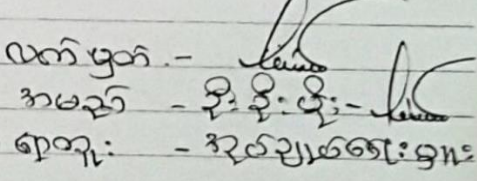 လက်မှတ် -
အမည် - ဦးဦးဖိုး -
ရာထူး - အုပ်ချုပ်ရေးမှူး